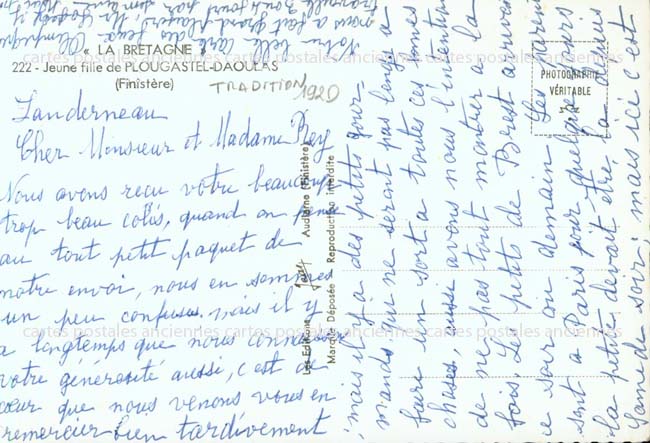 « LA BRETAGNE »
222 - Jeune fille de PLOUGASTEL-DAOULAS
(Finistère)
TRADITION 1920
Landerneau
Cher Monsieur et Madame Rey
Nous avons reçu votre beaucoup
trop beau colis, quand on pense
au tout petit paquet de
notre envoi, nous en sommes
un peu confuses. mais il y
a longtemps que nous connaissons
votre générosité aussi, c'est de
cœur que nous venons vous en
remercier bien tardivement
mais il y a des petits gour-
mands qui ne seront pas longs a
faire un sort a toutes ces bonnes
choses, aussi avons nous l'intention
de ne pas tout montrer a la
fois. Les petits de Brest arrivent
ce soir ou demain. Les parents
sont a Paris pour quelques jours
la petite devait être là depuis
Samedi soir; mais ici c'est
Votre belle carte
nous a fait grand plaisir,
Les Editions Jack Audierne (Finistère)
Marque Déposée Reproduction interdite
PHOTOGRAPHIE
VÉRITABLE
cartes postales anciennes cartes postales anciennes cartes postales anciennes
cartes postales anciennes cartes postales anciennes cartes postales anciennes